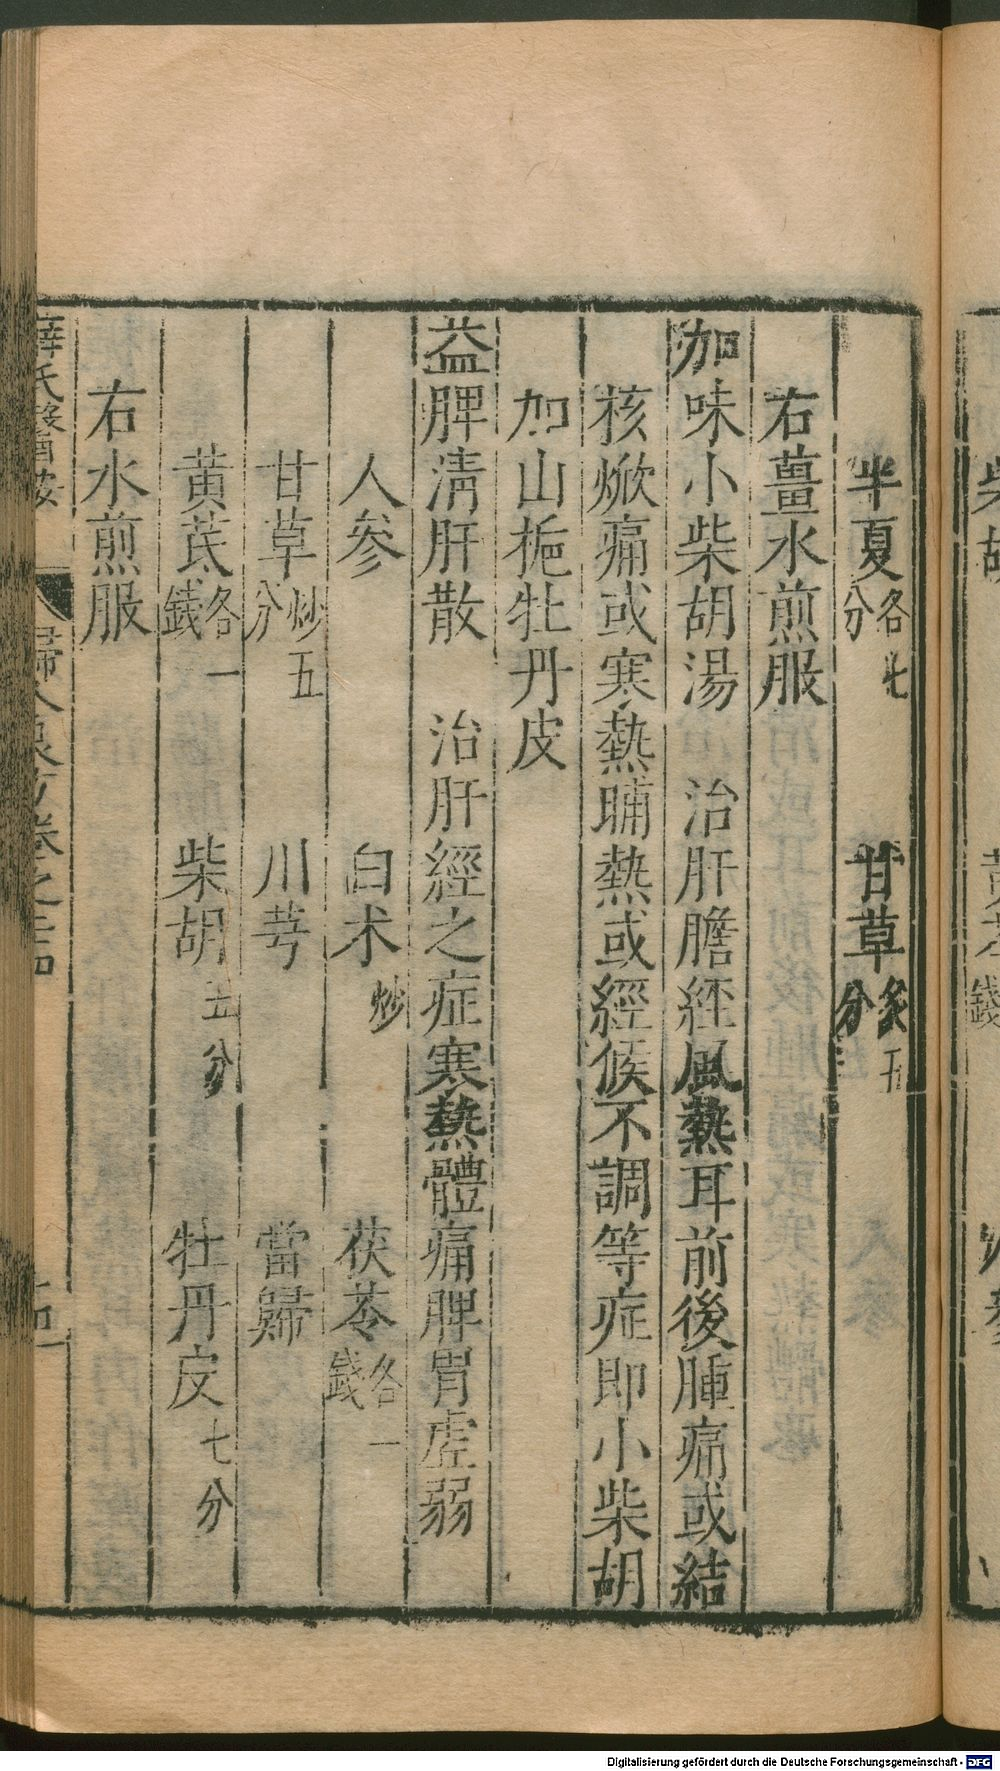 半夏各七分　甘草炙五分
右薑水煎服
加味小柴胡湯　治肝膽經風熱耳前後腫痛或結
核焮痛或寒熱晡熱或經候不調等症即小柴胡
加山梔牡丹皮
益脾淸肝散　治肝經之症寒熱體痛脾胃虛弱
人參　白朮炒　茯苓各一錢
甘草炒五分　川芎　當歸
黃芪各一錢　柴胡五分　牡丹皮七分
右水煎服
薛氏醫按　婦人良方卷之二十四
Digitalisierung gefördert durch die Deutsche Forschungsgemeinschaft - DFG